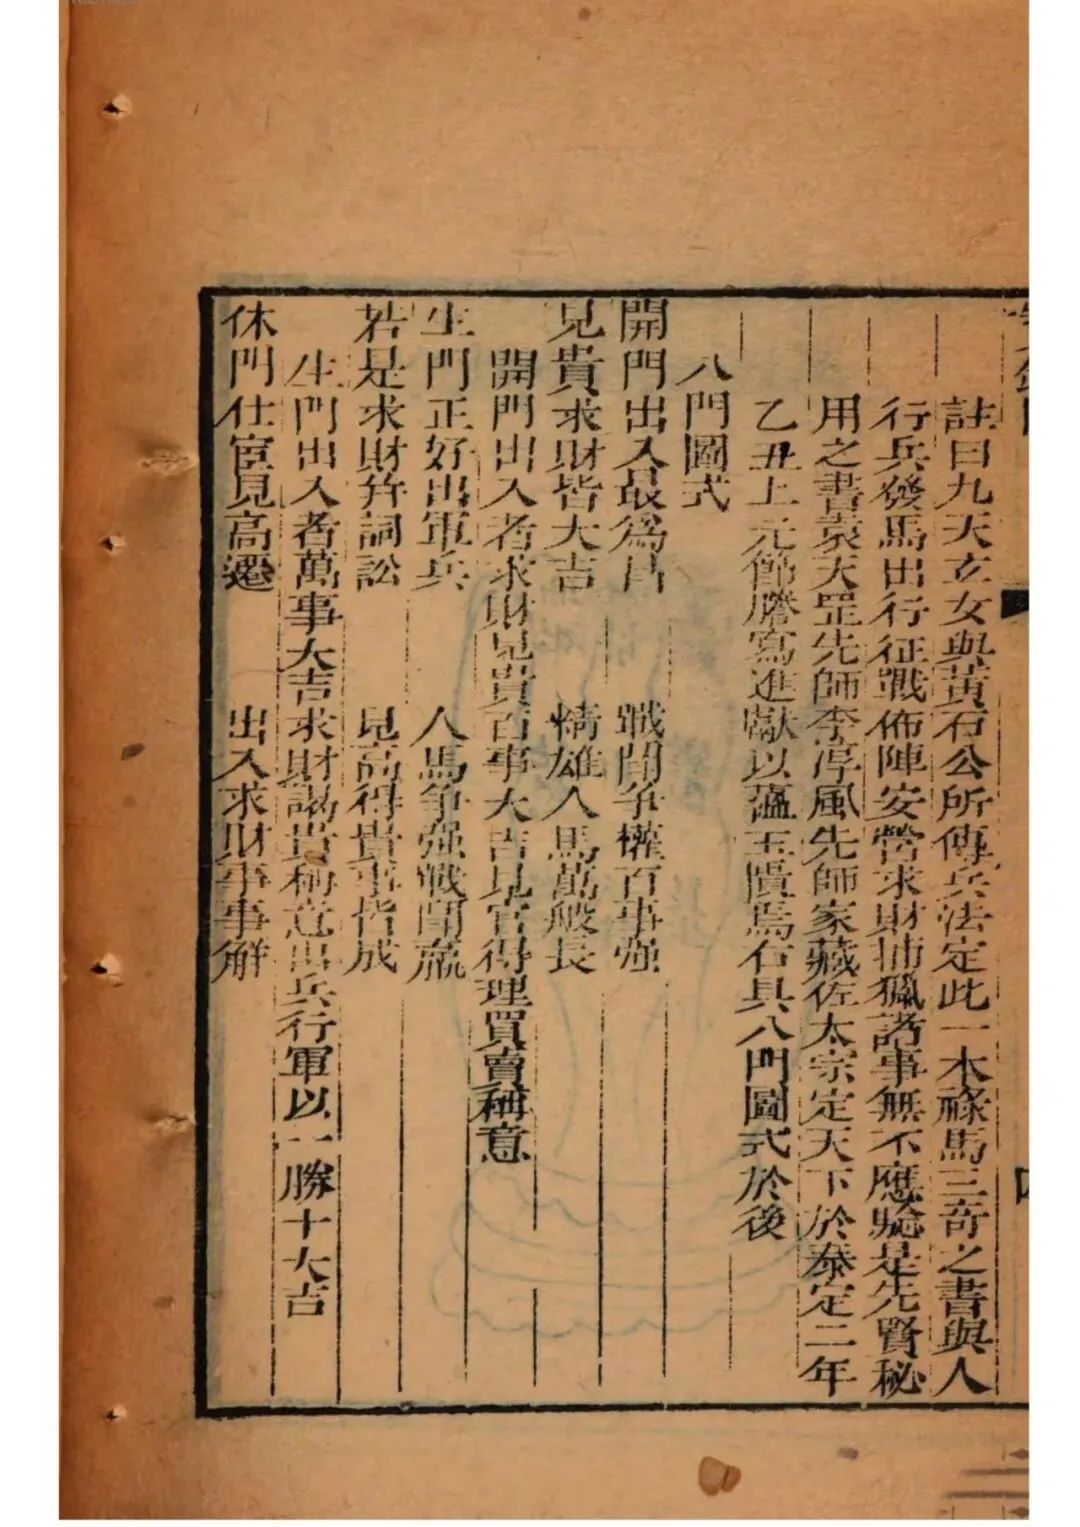 註曰九天玄女與黃石公所傳兵法定此一木祿馬三奇之書與人
行兵發馬出行征戰佈陣安營求財捕獵諸事無不應驗是先賢秘
用之書袁天罡先師李淳風先師家藏佐太宗定天下於泰定二年
乙丑上元節謄寫進獻以藴玉隤焉石具八門圖式於後
八門圖式
開門出入最爲昌 戰鬪爭權百事强
見貴求財皆大吉 精雄人馬萬般長
開門出入者求財見貴百事大吉見官得理買賣稱意
生門正好出軍兵 人馬爭强戰鬪嬴
若是求財并詞訟 見高得貴事皆成
生門出入者萬事大吉求財謁貴稱意出兵行軍以一勝十大吉
休門仕宦見高遷 出入求財事事解